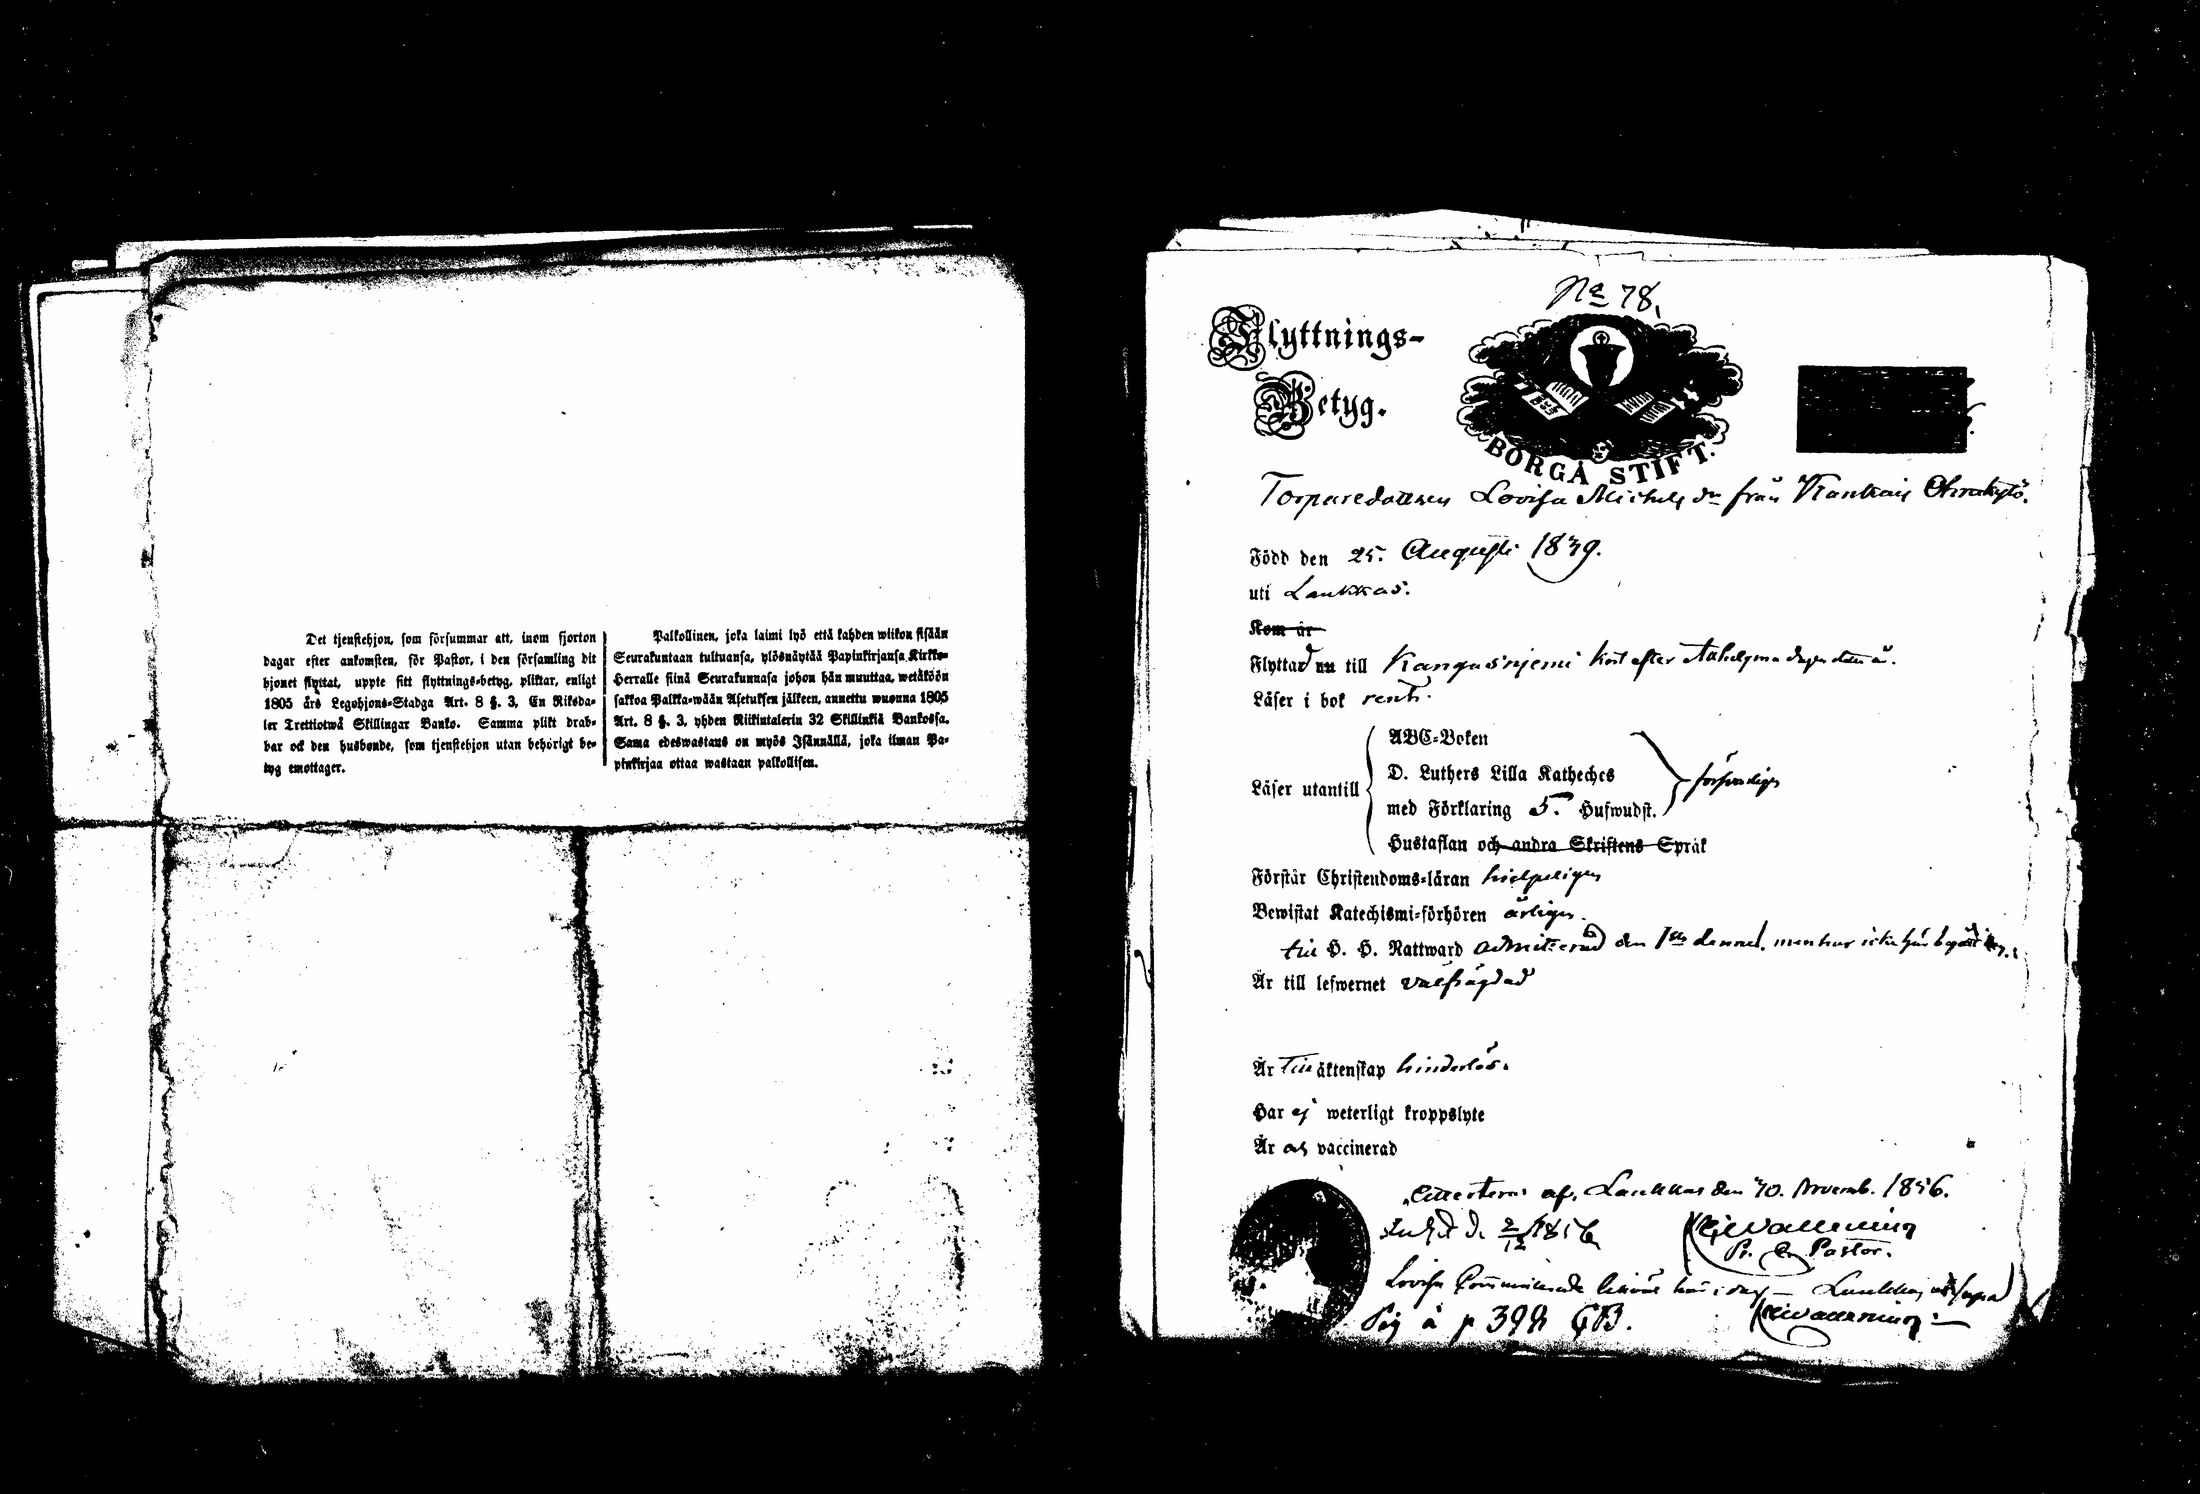 Det tjenstehjon, som försummar att, inom fjorton
dagar efter ankomsten, för Pastor, i den församling dit
hjonet flyttat, uppte sitt flyttnings-betyg, pliktar, enligt
1805 års Legohjons-Stadga Art. 8 §. 3, En Riksda-
ler Trettiotwå Skillingar Banko. Samma plikt drab-
bar ock den husbonde, som tjenstehjon utan behörigt be-
tyg emottager.
Palkollinen, joka laimi lyö että kahden wiikon sisään
Seurakuntaan tultuansa, ylösnäytää Papinkirjansa Kirkko-
Herralle siinä Seurakunnasa johon hän muuttaa, wetäköön
sakkoa Palkka-wään Asetuksen jälkeen, annettu wuonna 1805
Art. 8 §. 3, yhden Riikintalerin 32 Skillinkiä Bankossa.
Sama edeswastaus on myös Isännällä, joka ilman Pa-
pinkirjaa ottaa wastaan palkollisen.
No 78.
Flyttnings-
Betyg.
BORGÅ STIFT.
Torparedottren Lovisa Michels dr från
Född den 25. Augusti 1839.
uti Laukkas.
Kom år
Flyttad nu till Kangasnjemi kort efter
Läser i bok rent.
Läser utantill
ABC-Boken
D. Luthers Lilla Katheches
med Förklaring 5. Hufwudst.
försvarligen
Hustaflan och andra Skriftens Språk
Förstår Christendoms-läran hielpeligen
Bewistat Katechismi-förhören årligen.
till H. H. Nattward admitterad den men har icke
Är till lefwernet välfrägdad
Är till äktenskap hinderlös.
Har ej weterligt kroppslyte
Är och vaccinerad
af. Laukkas den 30. Novemb. 1856.
d. 2/12 1856
Pastor.
Lovisa här i dag — Laukkas
Pig å p 399 CB.